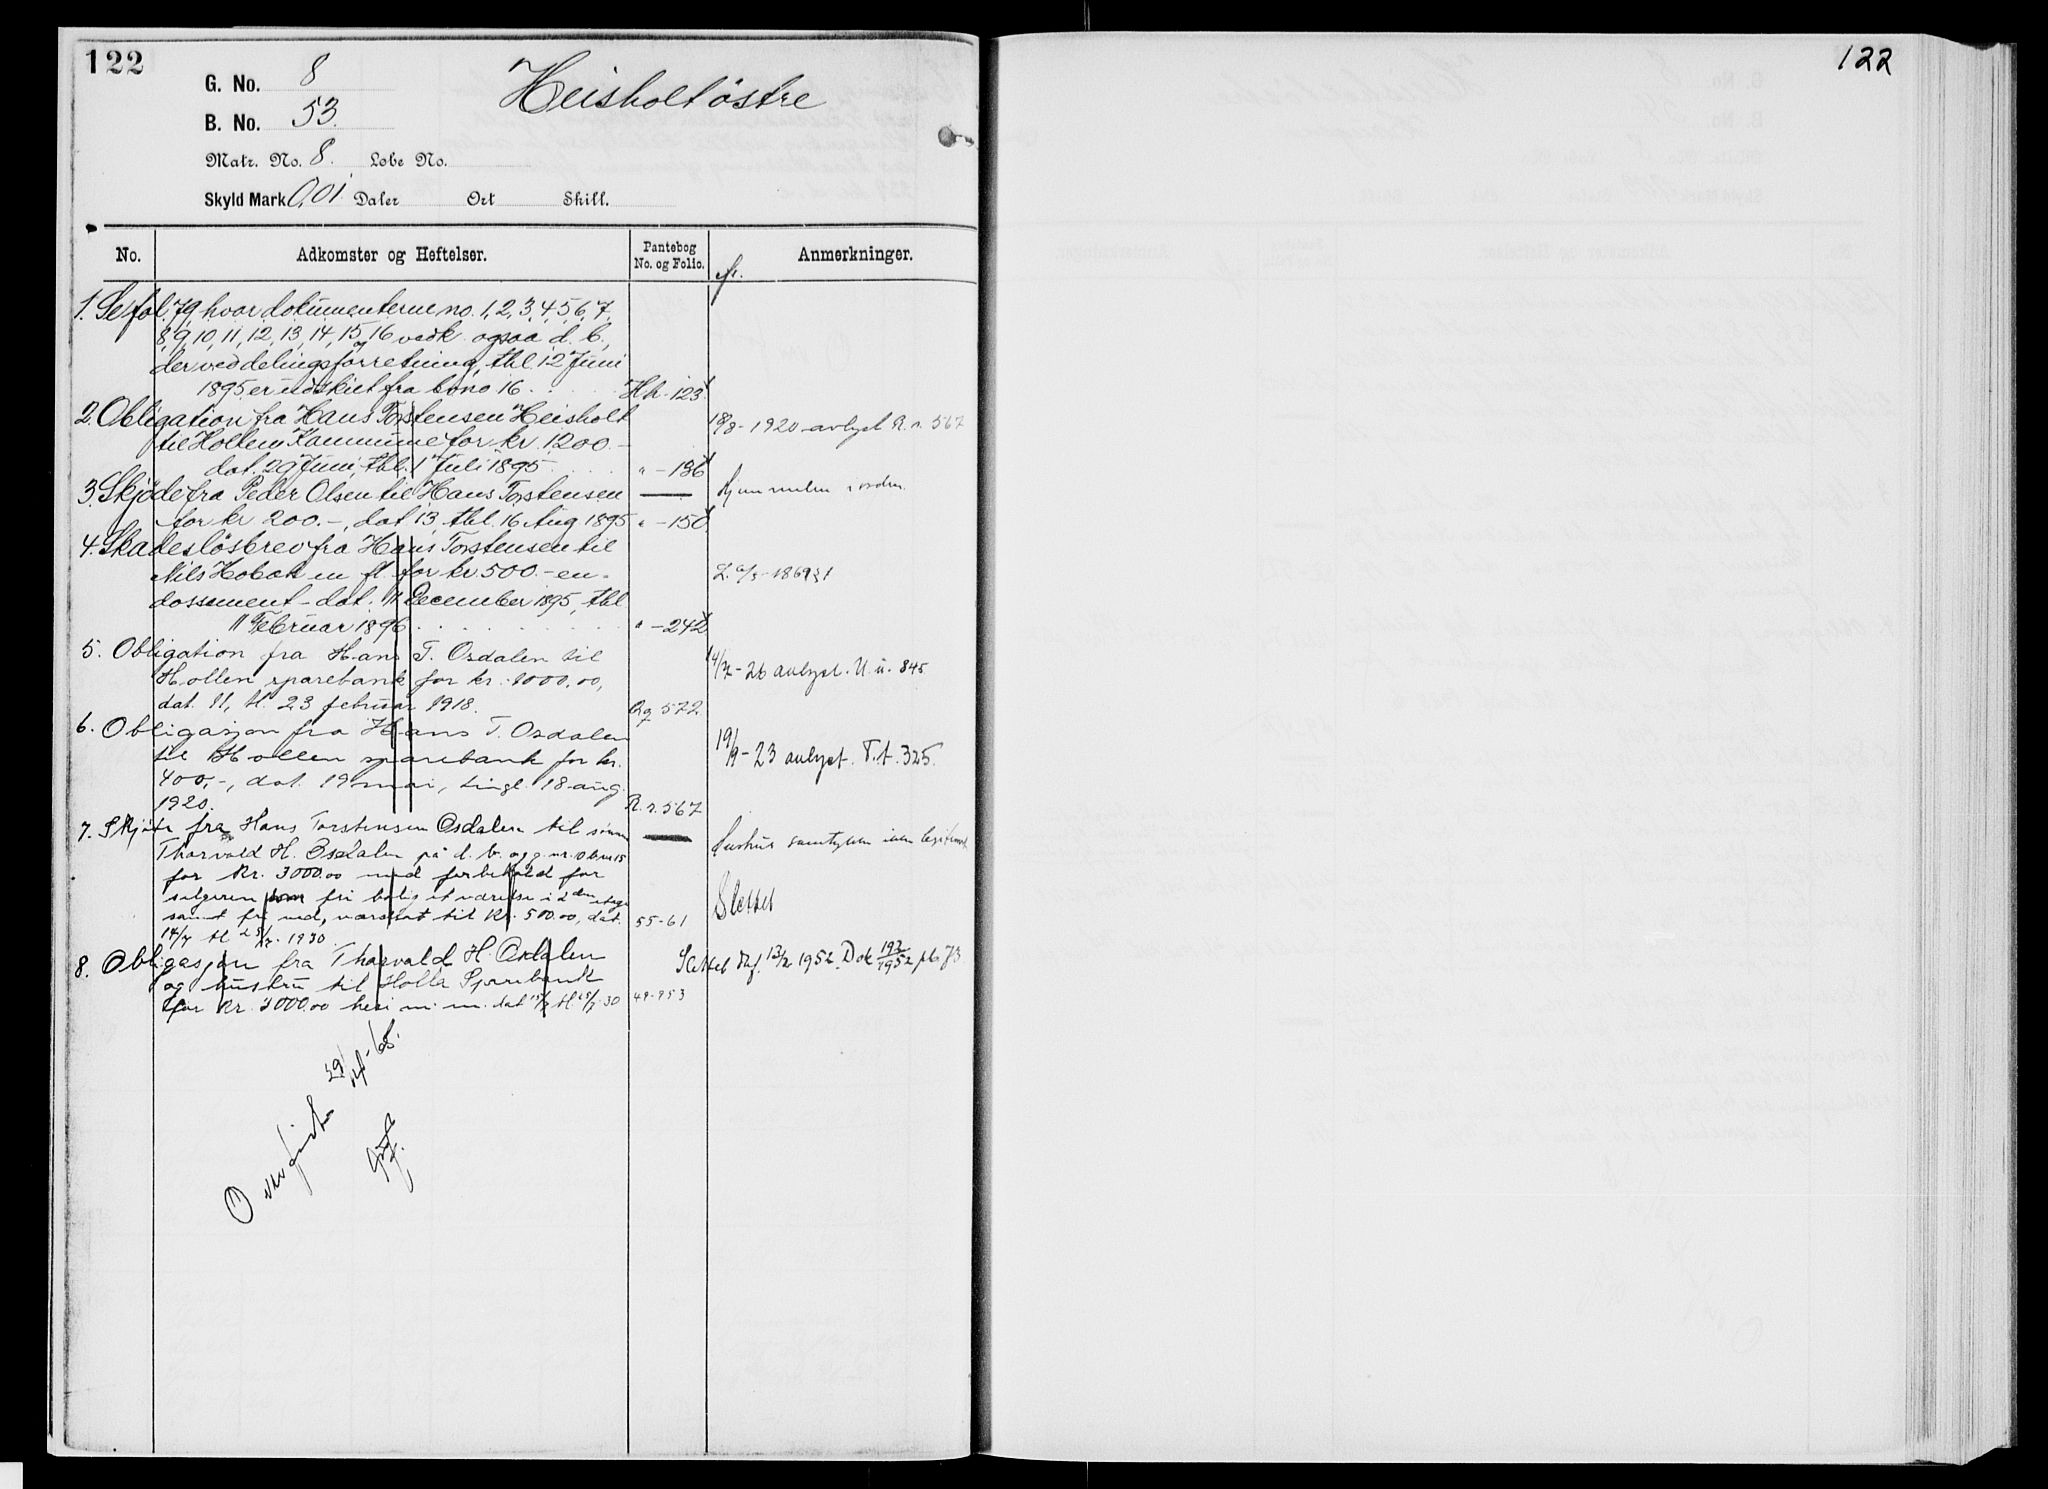 122
G. No. 8
Heisholt östre
B. No. 53.
Matr. No. 8. Løbe No.
Skyld Mark 0,01 Daler Ort Skill.
No. Adkomster og Heftelser. Pantebog No. og Folio. Anmerkninger.
1. Se fol. 79 hvor dokumenterne no. 1, 2, 3, 4, 5, 6, 7,
8, 9, 10, 11, 12, 13, 14, 15 og 16 vedk. ogsaa d. b.,
der ved delingsforretning, thl. 12 Juni
1895 er udskilt fra b no 16. Hh - 123.
2. Obligation fra Hans Torstensen Heisholt
til Hollen Kommune for kr. 1200.-
18/8 - 1920 avlyst R. r. 567
dat. 29 Juni, thl. 1 Juli 1895. " - 136
3. Skjöde fra Peder Olsen til Hans Torstensen
Hjemmelen i orden.
for kr 200.-, dat 13, thl. 16 Aug 1895 " - 150.
4. Skadeslösbrev fra Hans Torstensen til
Nils Hobæk m fl. for kr 500.- en-
dossement - dat. 11 December 1895, thl
11 Februar 1896 " - 242
5. Obligation fra Hans T. Osdalen til
Hollen sparebank for kr. 1000,00,
- 26 avlyst. U. u. 845
dat. 11, tl. 23 februar 1918. Qq 572
6. Obligasjon fra Hans T. Osdalen
til Hollen sparebank for kr.
19/9 - 23 avlyst. T. t. 325.
400,-, dat. 19 mai, tingl. 18 aug.
1920. R. r. 567
7. Skjøte fra Hans Torstensen Osdalen til sønnen
Thorvald H. Osdalen på d. b. og g. nr.
for Kr. 3000.00 med forbehold for
selgeren fri bolig et værelse i 2den etage
Slettet
samt fri ved, værdsat til Kr. 500.00, dat.
55-61
14/7 tl 25/7. 1930.
8. Obligasjon fra Thorvald H. Osdalen
Slettet dagf. 13/2 1952. Dok 193/1952
og hustru til Holla Sparebank
for Kr. 3000.00 heri m. m. dat 15/7 tl 25/7 30 49-953
Overført 29/4-68.
122